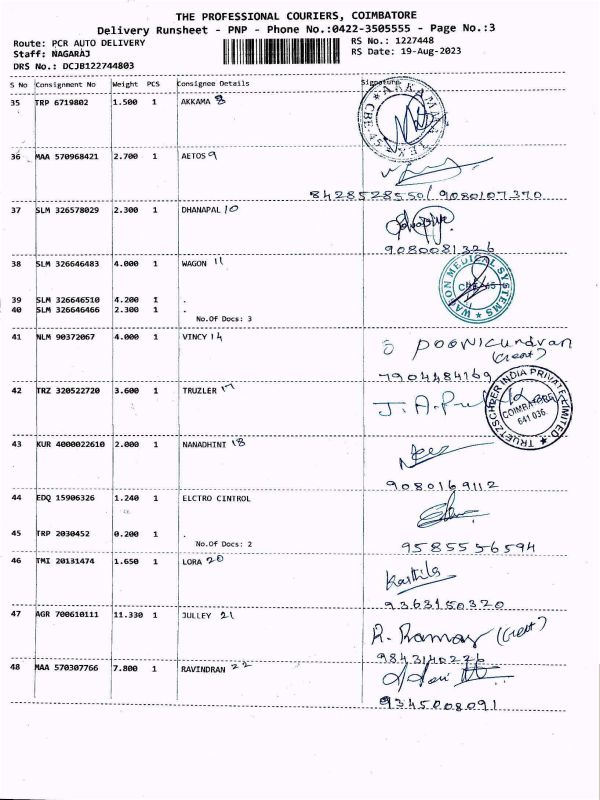 THE PROFESSIONAL COURIERS, COIMBATORE
Delivery Runsheet - PNP - Phone No.:0422-3505555 - Page No.:3
Route: PCR AUTO DELIVERY RS No.: 1227448
Staff: NAGARAJ RS Date: 19-Aug-2023
DRS No.: DCJB122744803
S No Consignment No Weight PCS Consignee Details Signature
35 TRP 6719802 1.500 1 AKKAMA 8
36 MAA 570968421 2.700 1 AETOS 9
8428528550/9080107370
37 SLM 326578029 2.300 1 DHANAPAL 10
9080081326
38 SLM 326646483 4.000 1 WAGON 11
WAGON MEDICAL SYSTEMS
39 SLM 326646510 4.200 1 .
40 SLM 326646466 2.300 1 .
No.Of Docs: 3
41 NLM 90372067 4.000 1 VINCY 14
7904484169
42 TRZ 320522720 3.600 1 TRUZLER 17
TRUETZSCHLER INDIA PRIVATE LIMITED
COIMBATORE
641 036.
43 KUR 4000022610 2.000 1 NANADHINI 18
9080169112
44 EDQ 15906326 1.240 1 ELCTRO CINTROL
45 TRP 2030452 0.200 1 .
No.Of Docs: 2
9585556594
46 TMI 20131474 1.650 1 LORA 20
Karthik
9363150320
47 AGR 700610111 11.330 1 JULLEY 21
R. Ramay
9843140226
48 MAA 570307766 7.800 1 RAVINDRAN 22
9345008091